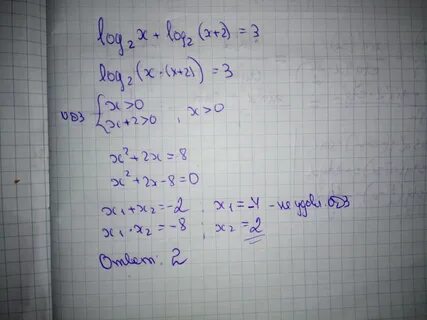 log₂x + log₂(x+2) = 3
log₂(x·(x+2)) = 3
ОДЗ { x>0
x+2>0 ; x>0
x²+2x=8
x²+2x-8=0
x₁+x₂=-2 ; x₁=-4 - не удовл. ОДЗ
x₁·x₂=-8 ; x₂=2
Ответ: 2